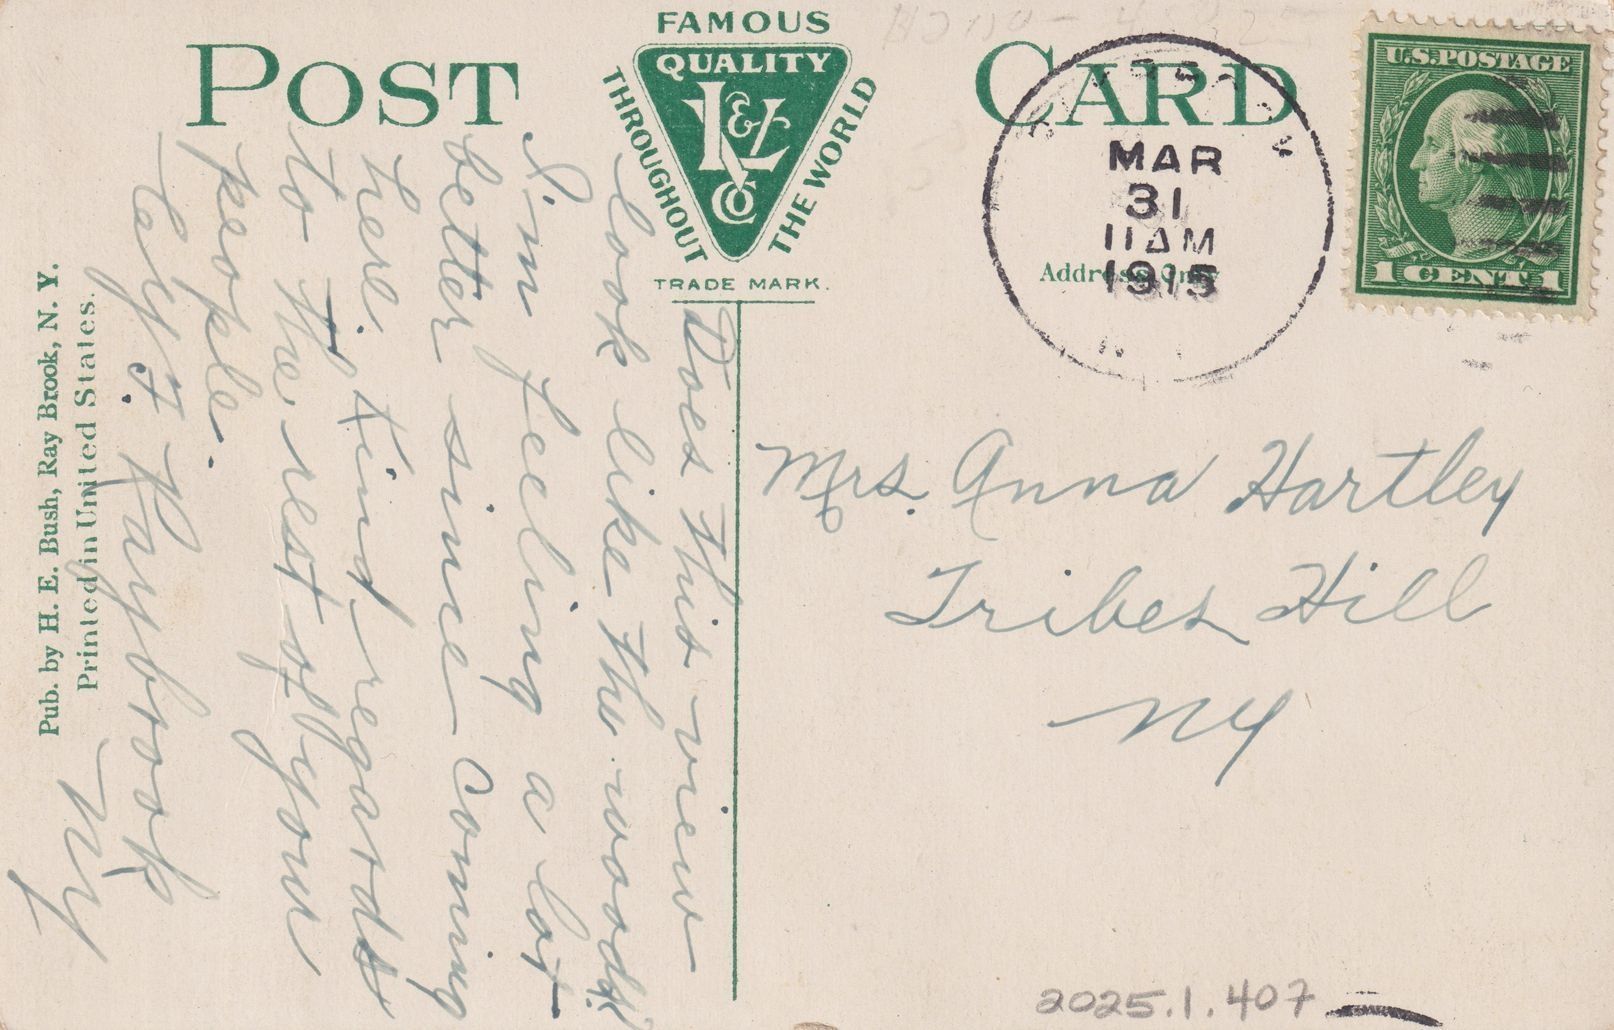 POST CARD
FAMOUS
QUALITY
K & L
Co
THROUGHOUT
THE WORLD
TRADE MARK.
Address Only
MAR
31
11 AM
1915
U.S. POSTAGE
1 CENT 1
Does this view
look like the woods.
I'm feeling a lot
better since coming
here. Kind regards
to the rest of your
people.
Raybrook
NY
Mrs. Anna Hartley
Tribes Hill
NY
Pub. by H. E. Bush, Ray Brook, N. Y.
Printed in United States.
2025.1.407